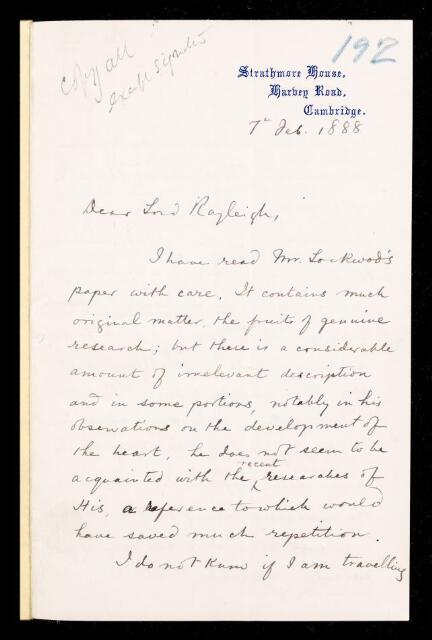 copy all
except signature
192
Strathmore House,
Harvey Road,
Cambridge.
7th Feb. 1888
Dear Lord Rayleigh,
I have read Mr. Lockwood's
paper with care. It contains much
original matter, the fruits of genuine
research; but there is a considerable
amount of irrelevant description
and in some portions, notably in his
observations on the development of
the heart, he does not seem to be
acquainted with the recent researches of
His, a reference to which would
have saved much repetition.
I do not know if I am travelling